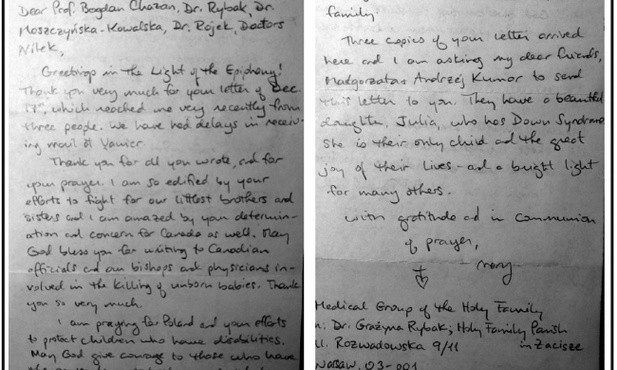 Dear Prof. Bogdan Chazan, Dr. Rybak, Dr.
Moszczyńska-Kowalska, Dr. Rojek, Doctors
Nitek,
Greetings in the Light of the Epiphany!
Thank you very much for your letter of Dec.
which reached me very recently from
three people. We have had delays in receiv-
ing mail at Vanier.
Thank you for all you wrote, and for
your prayer. I am so edified by your
efforts to fight for our littlest brothers and
sisters and I am amazed by your determin-
ation and concern for Canada as well. May
God bless you for writing to Canadian
officials and our bishops and physicians in-
volved in the killing of unborn babies. Thank
you so very much.
I am praying for Poland and your efforts
to protect children who have disabilities.
May God give courage to those who have
family.
Three copies of your letter arrived
here and I am asking my dear friends,
Małgorzata + Andrzej Kumor to send
this letter to you. They have a beautiful
daughter, Julia, who has Down Syndrome
She is their only child and the great
joy of their lives - and a bright light
for many others.
With gratitude and in communion
of prayer,
Mary
Medical Group of the Holy Family
Dr. Grażyna Rybak, Holy Family Parish
Ul. Rozwadowska 9/11 in Zacisze
Warsaw, 03-001